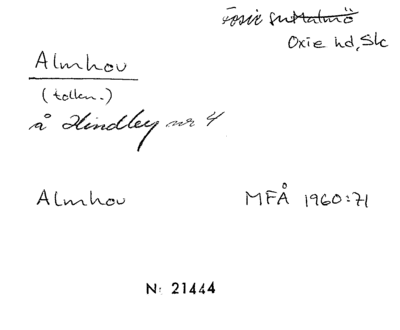 Fosie sn Malmö
Oxie hd, Sk
Almhov
(tolkn.)
å Hindby nr 4
Almhov MFÅ 1960:71
N: 21444